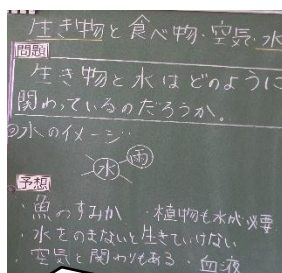 生き物と食べ物・空気・水
問題
生き物と水はどのように
関わっているのだろうか。
水のイメージ…
水 雨
予想
・魚のすみか ・植物も水が必要
・水をのまないと生きていけない
・空気と関わりもある ・血液